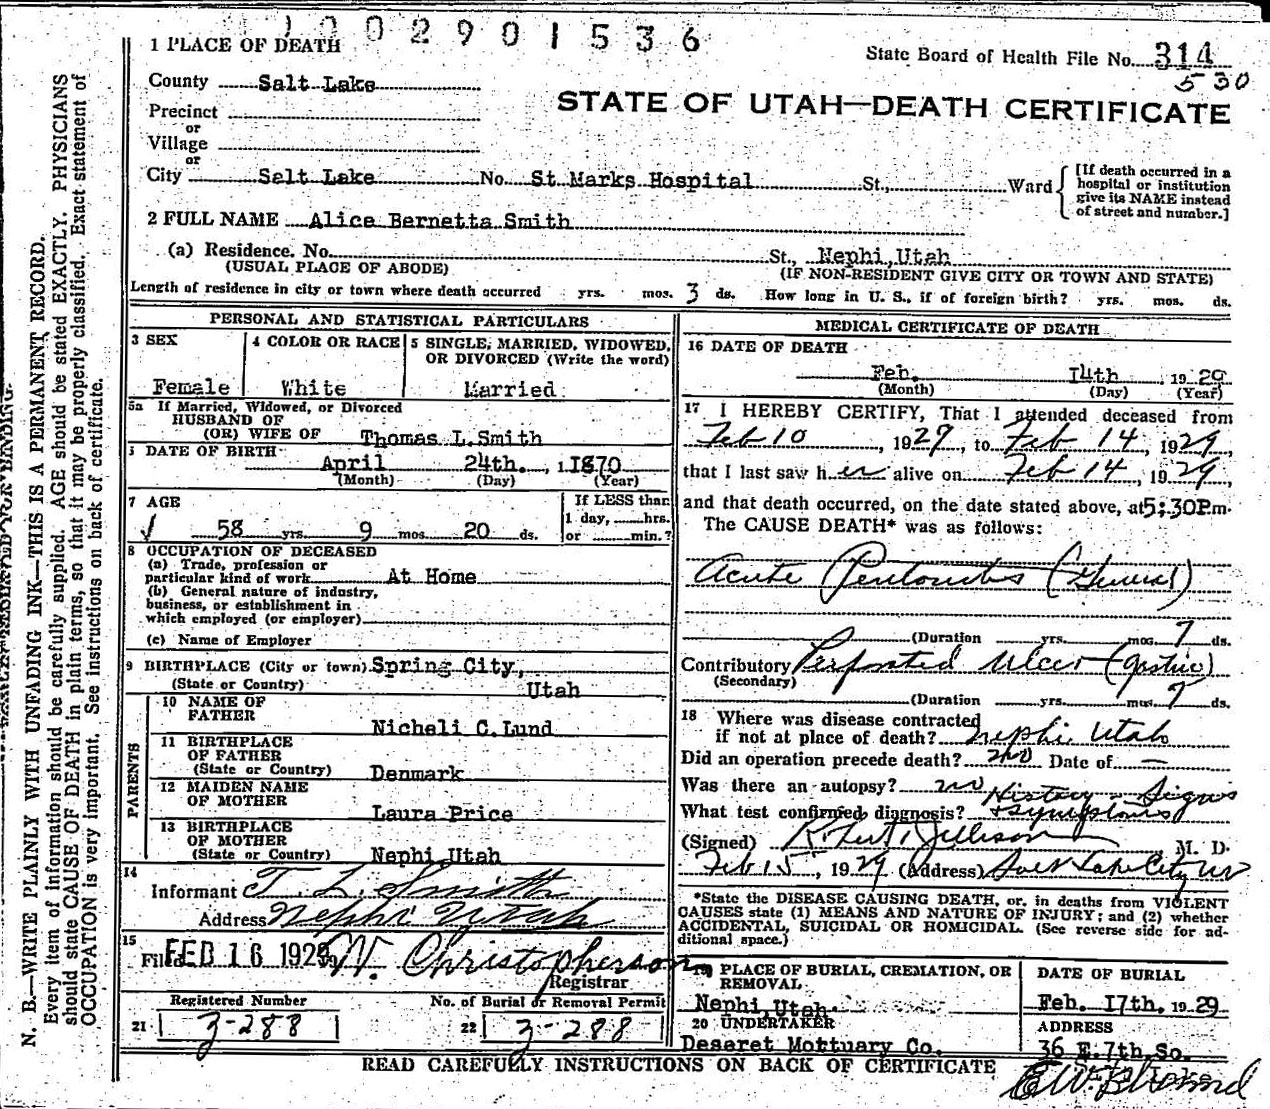 1002901536
State Board of Health File No. 314
530
STATE OF UTAH—DEATH CERTIFICATE
1 PLACE OF DEATH
County Salt Lake
Precinct
or
Village
or
City Salt Lake No. St Marks Hospital St., Ward
[If death occurred in a
hospital or institution
give its NAME instead
of street and number.]
2 FULL NAME Alice Bernetta Smith
(a) Residence. No. St., Nephi, Utah
(USUAL PLACE OF ABODE) (IF NON-RESIDENT GIVE CITY OR TOWN AND STATE)
Length of residence in city or town where death occurred yrs. mos. 3 ds. How long in U. S., if of foreign birth? yrs. mos. ds.
PERSONAL AND STATISTICAL PARTICULARS
3 SEX
Female
4 COLOR OR RACE
White
5 SINGLE, MARRIED, WIDOWED,
OR DIVORCED (Write the word)
Married
5a If Married, Widowed, or Divorced
HUSBAND OF
(OR) WIFE OF Thomas L. Smith
DATE OF BIRTH
April 24th. , 1870
(Month) (Day) (Year)
7 AGE
58 yrs. 9 mos. 20 ds.
If LESS than
1 day, hrs.
or min.?
8 OCCUPATION OF DECEASED
(a) Trade, profession or
particular kind of work At Home
(b) General nature of industry,
business, or establishment in
which employed (or employer)
(c) Name of Employer
9 BIRTHPLACE (City or town) Spring City,
(State or Country) Utah
PARENTS
10 NAME OF
FATHER Nicheli C. Lund
11 BIRTHPLACE
OF FATHER
(State or Country) Denmark
12 MAIDEN NAME
OF MOTHER Laura Price
13 BIRTHPLACE
OF MOTHER
(State or Country) Nephi, Utah
14
Informant T. L. Smith
Address Nephi Utah
15
Filed FEB 16 1929 W. Christopherson
Registrar
Registered Number
21 3-288
No. of Burial or Removal Permit
22 3-288
MEDICAL CERTIFICATE OF DEATH
16 DATE OF DEATH
Feb. 14th , 1929
(Month) (Day) (Year)
17 I HEREBY CERTIFY, That I attended deceased from
Feb 10 , 1929, to Feb 14 1929,
that I last saw her alive on Feb 14 , 1929,
and that death occurred, on the date stated above, at 5:30P.m.
The CAUSE DEATH* was as follows:
Acute Peritonitis (General)
(Duration yrs. mos. 7 ds.
Contributory Perforated Ulcer (gastric)
(Secondary)
(Duration yrs. mos. 7 ds.
18 Where was disease contracted
if not at place of death? Nephi Utah
Did an operation precede death? no Date of —
Was there an autopsy? no
What test confirmed diagnosis? History - Signs
+ symptoms
(Signed) Robert Jellison M. D.
Feb 15, 1929 (Address) Salt Lake City
*State the DISEASE CAUSING DEATH, or, in deaths from VIOLENT
CAUSES state (1) MEANS AND NATURE OF INJURY; and (2) whether
ACCIDENTAL, SUICIDAL OR HOMICIDAL. (See reverse side for ad-
ditional space.)
19 PLACE OF BURIAL, CREMATION, OR
REMOVAL
Nephi, Utah.
DATE OF BURIAL
Feb. 17th. 1929
20 UNDERTAKER
Deseret Mottuary Co.
ADDRESS
36 E. 7th. So.
READ CAREFULLY INSTRUCTIONS ON BACK OF CERTIFICATE
N. B.—WRITE PLAINLY WITH UNFADING INK—THIS IS A PERMANENT RECORD.
Every item of information should be carefully supplied. AGE should be stated EXACTLY. PHYSICIANS
should state CAUSE OF DEATH in plain terms, so that it may be properly classified. Exact statement of
OCCUPATION is very important. See instructions on back of certificate.